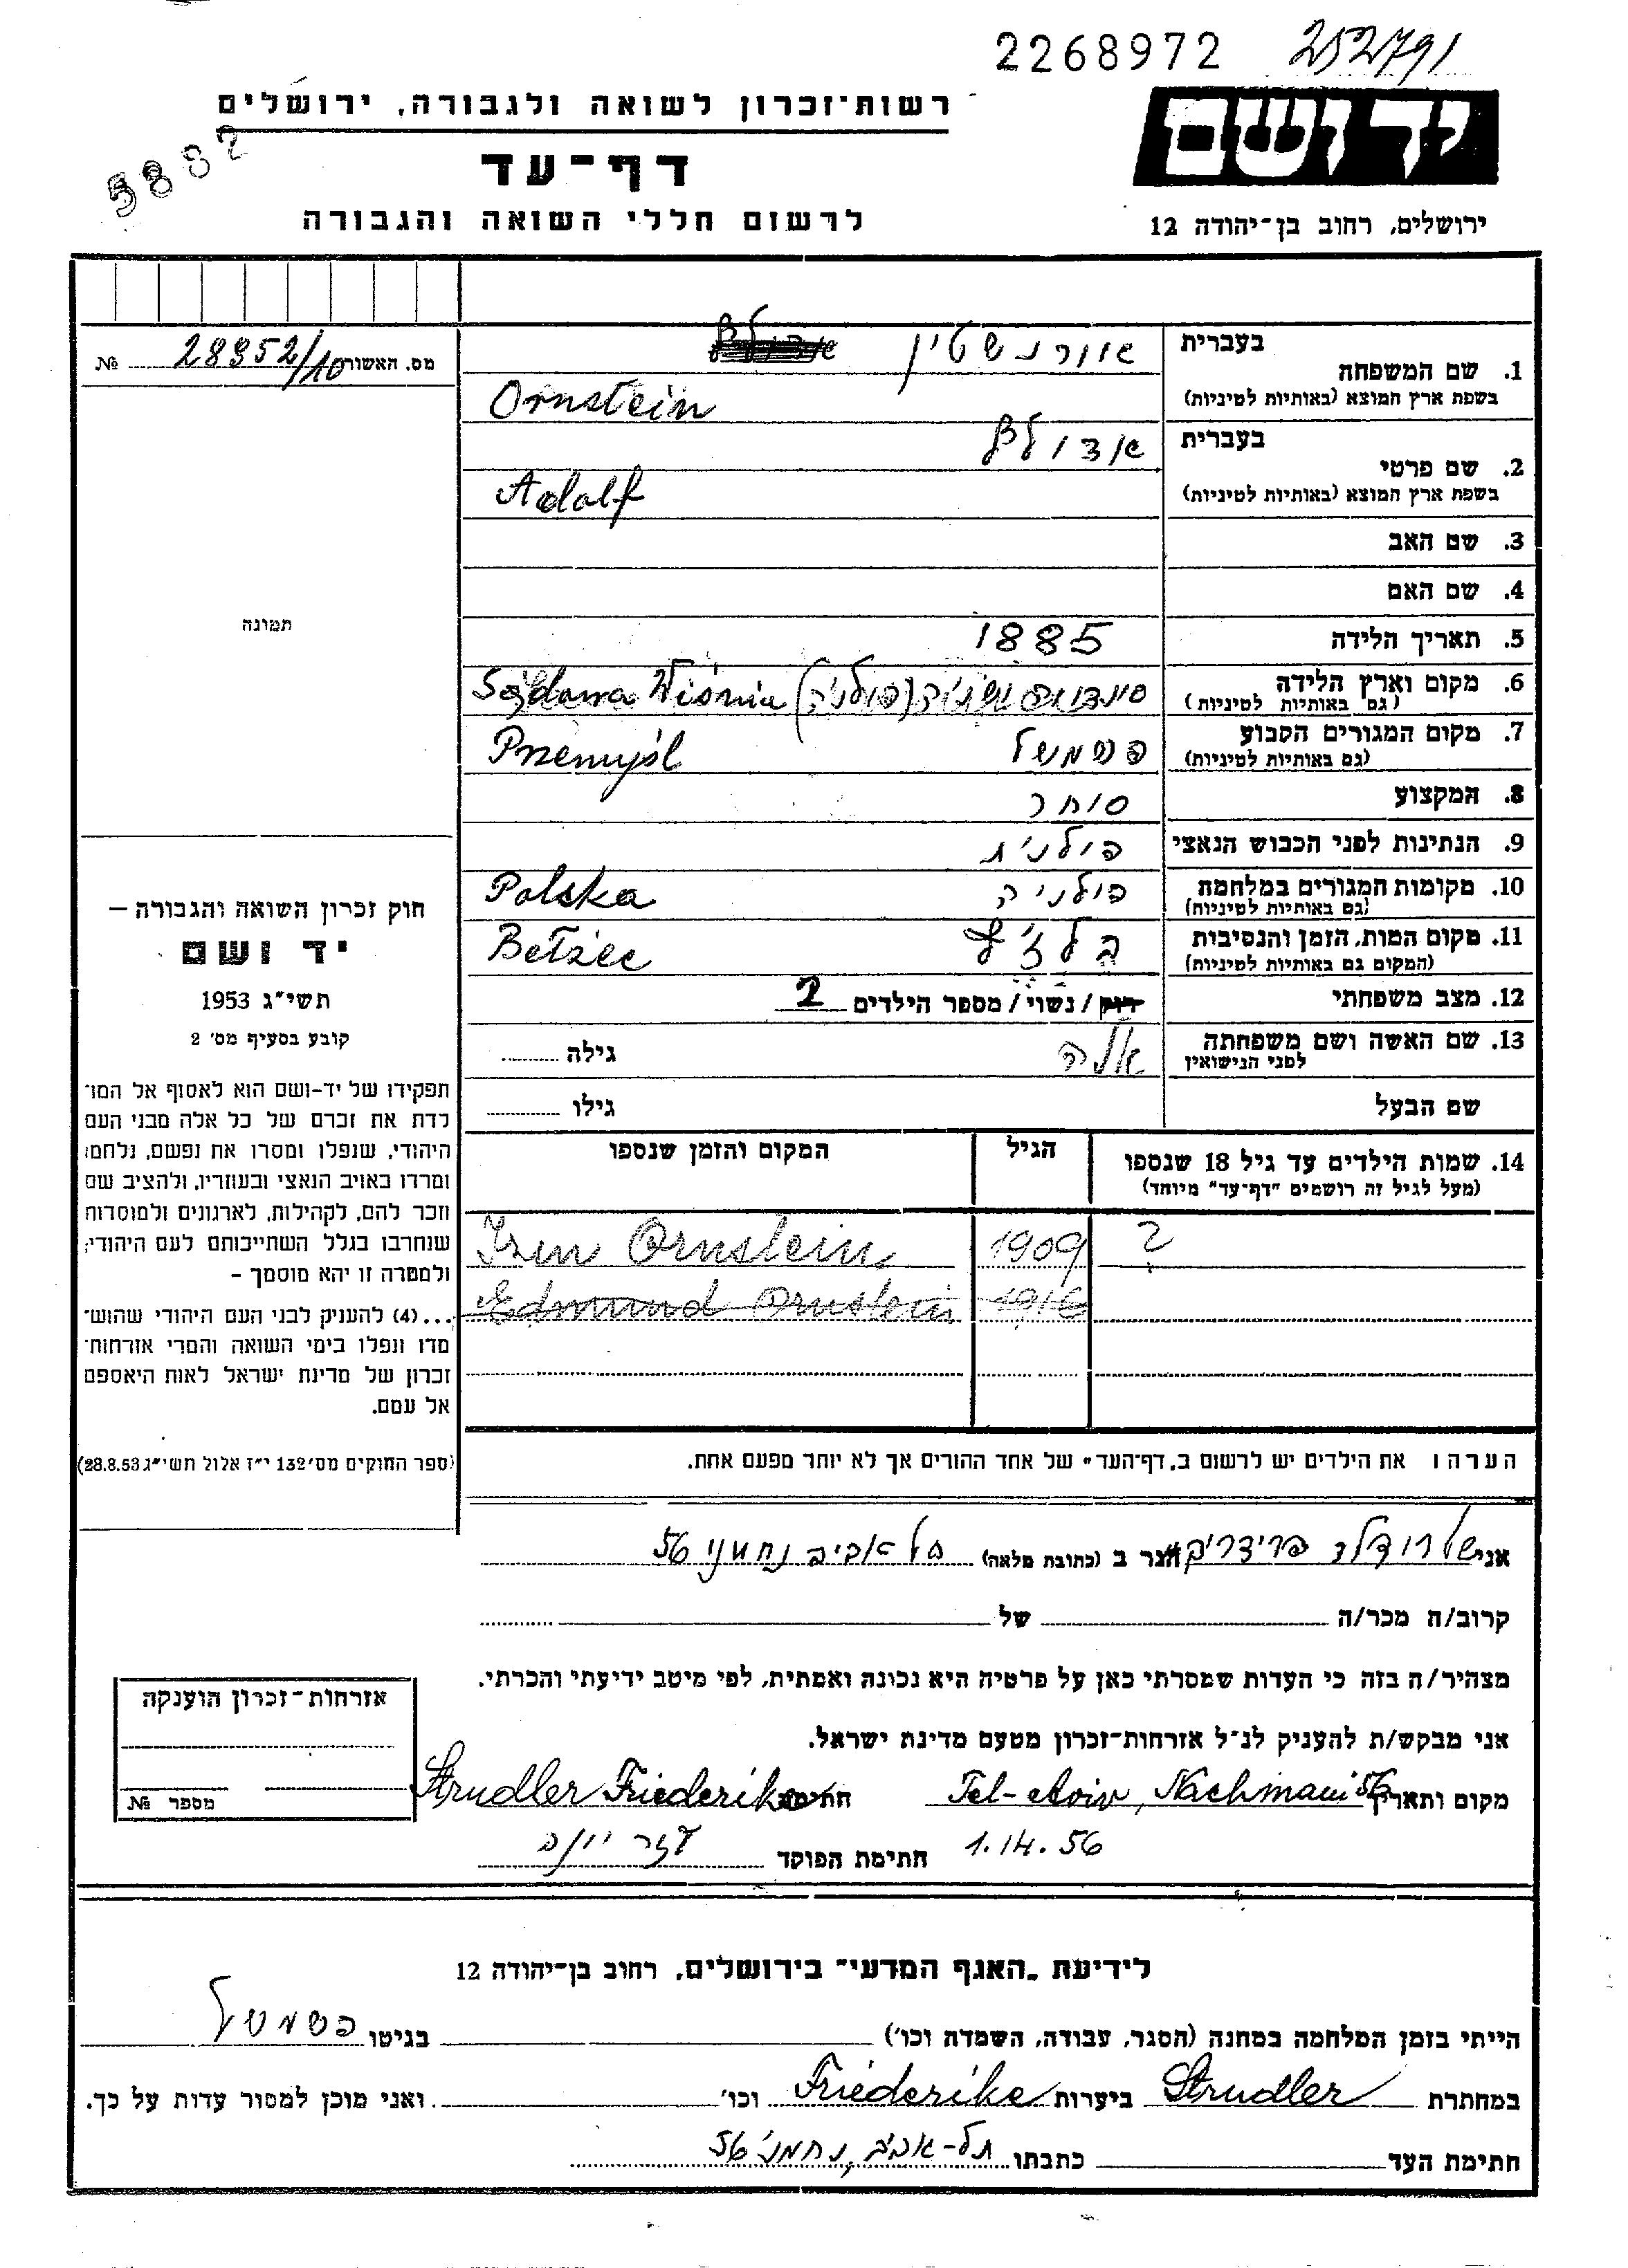 2268972 252791
יד ושם
רשות־זכרון לשואה ולגבורה, ירושלים
5882
דף־עד
לרשום חללי השואה והגבורה
ירושלים, רחוב בן־יהודה 12
מס. האשור 28952/10 №
בעברית אורנשטיין
1. שם המשפחה
בשפת ארץ המוצא (באותיות לטיניות) Ornstein
בעברית אדולף
2. שם פרטי
בשפת ארץ המוצא (באותיות לטיניות) Adolf
3. שם האב
4. שם האם
תמונה
5. תאריך הלידה 1885
6. מקום וארץ הלידה
(גם באותיות לטיניות) (פולניה) Wiśnia
7. מקום המגורים הקבוע
(גם באותיות לטיניות) פשמשל Przemyśl
8. המקצוע סוחר
9. הנתינות לפני הכבוש הנאצי פולנית
10. מקומות המגורים במלחמה
(גם באותיות לטיניות) פולניה Polska
11. מקום המות, הזמן והנסיבות
(המקום גם באותיות לטיניות) בלז'ץ Bełżec
12. מצב משפחתי רווק / נשוי / מספר הילדים 2
13. שם האשה ושם משפחתה
לפני הנישואין אלה גילה
שם הבעל גילו
חוק זכרון השואה והגבורה –
יד ושם
תשי"ג 1953
קובע בסעיף מס' 2
תפקידו של יד-ושם הוא לאסוף אל המו־
לדת את זכרם של כל אלה מבני העם
היהודי, שנפלו ומסרו את נפשם, נלחמו
ומרדו באויב הנאצי ובעוזריו, ולהציב שם
וזכר להם, לקהילות, לארגונים ולמוסדות
שנחרבו בגלל השתייכותם לעם היהודי;
ולמטרה זו יהא מוסמך –
...(4) להעניק לבני העם היהודי שהוש־
מדו ונפלו בימי השואה והמרי אזרחות־
זכרון של מדינת ישראל לאות היאספם
אל עמם.
(ספר החוקים מס' 132 י"ז אלול תשי"ג 28.8.53)
14. שמות הילדים עד גיל 18 שנספו הגיל המקום והזמן שנספו
(מעל לגיל זה רושמים "דף־עד" מיוחד)
? 1909 Ornstein
1916 Edmund Ornstein
הערה: את הילדים יש לרשום ב"דף־העד" של אחד ההורים אך לא יותר מפעם אחת.
אני שטרודלר פרידריקה הגר ב (כתובת מלאה) תל אביב נחמני 56
קרוב/ה מכר/ה של
מצהיר/ה בזה כי העדות שמסרתי כאן על פרטיה היא נכונה ואמתית, לפי מיטב ידיעתי והכרתי.
אני מבקש/ת להעניק לנ"ל אזרחות־זכרון מטעם מדינת ישראל.
מקום ותאריך Tel-Aviv, Nachmani 56 חתימה Strudler Friederike
1.14.56 חתימת הפוקד
אזרחות־זכרון הוענקה
מספר №
לידיעת "האגף המדעי" בירושלים, רחוב בן־יהודה 12
הייתי בזמן המלחמה במחנה (הסגר, עבודה, השמדה וכו') בגיטו פשמשל
במחתרת Strudler ביערות Friederike וכו' ואני מוכן למסור עדות על כך.
חתימת העד כתבתו תל-אביב, נחמני 56